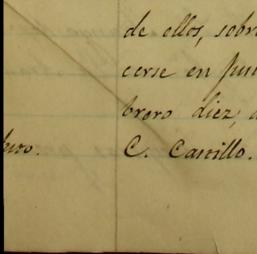 de ellos, sobr
cerse en jun
brero diez,
C. Carrillo.